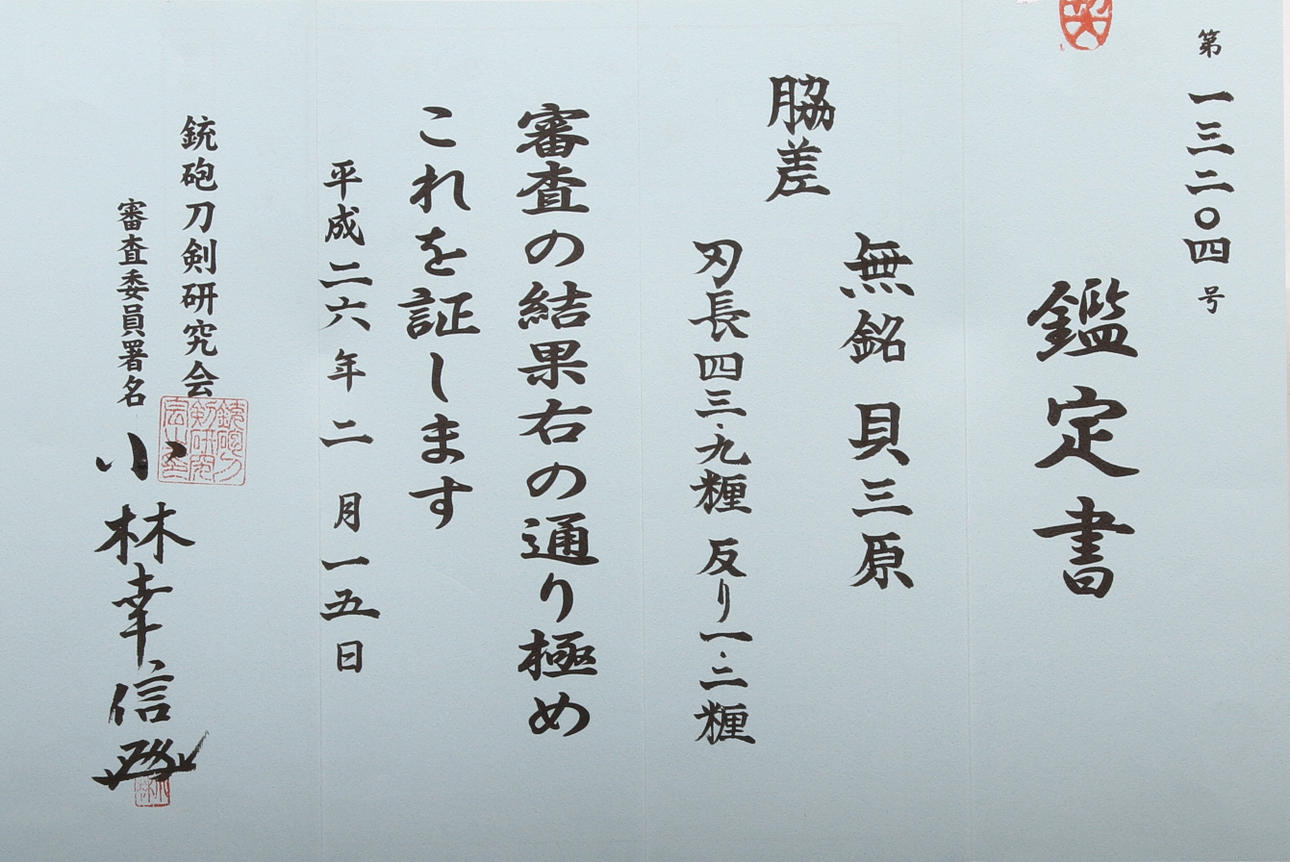 第一三二〇四号
鑑定書
無銘 貝三原
脇差
刃長四三.九糎 反り一.二糎
審査の結果右の通り極め
これを証します
平成二六年二月一五日
銃砲刀剣研究会
審査委員署名 小林幸信